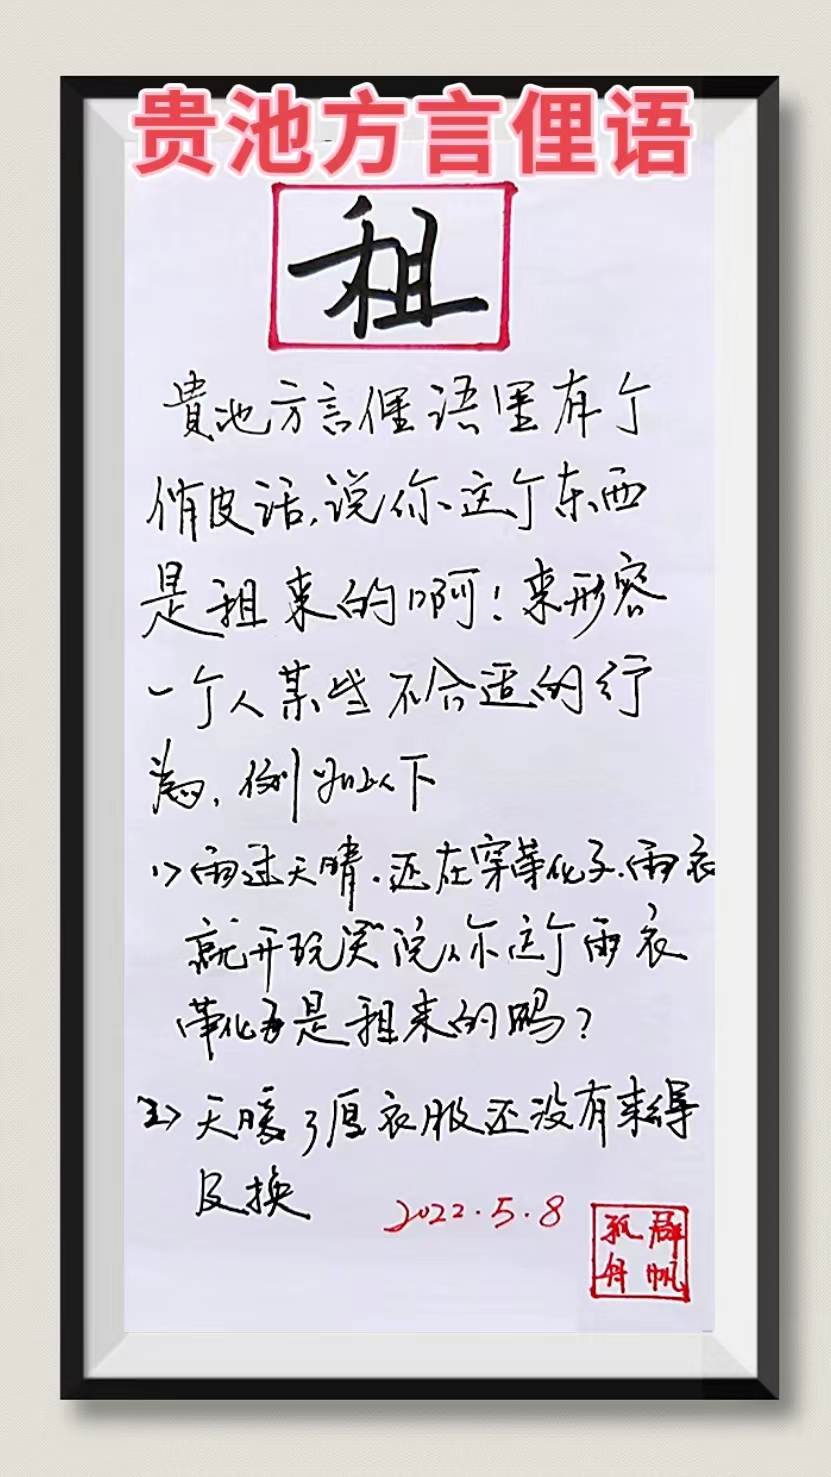 贵池方言俚语
租
貴池方言俚语里有个
俏皮话,说你这个东西
是租来的啊!来形容
一个人某些不合适的行
為,例如以下
1>雨过天晴.还在穿
就开玩笑说你这个雨衣
是租来的吗?
2>天暖了厚衣服还没有来得
及换
2022.5.8